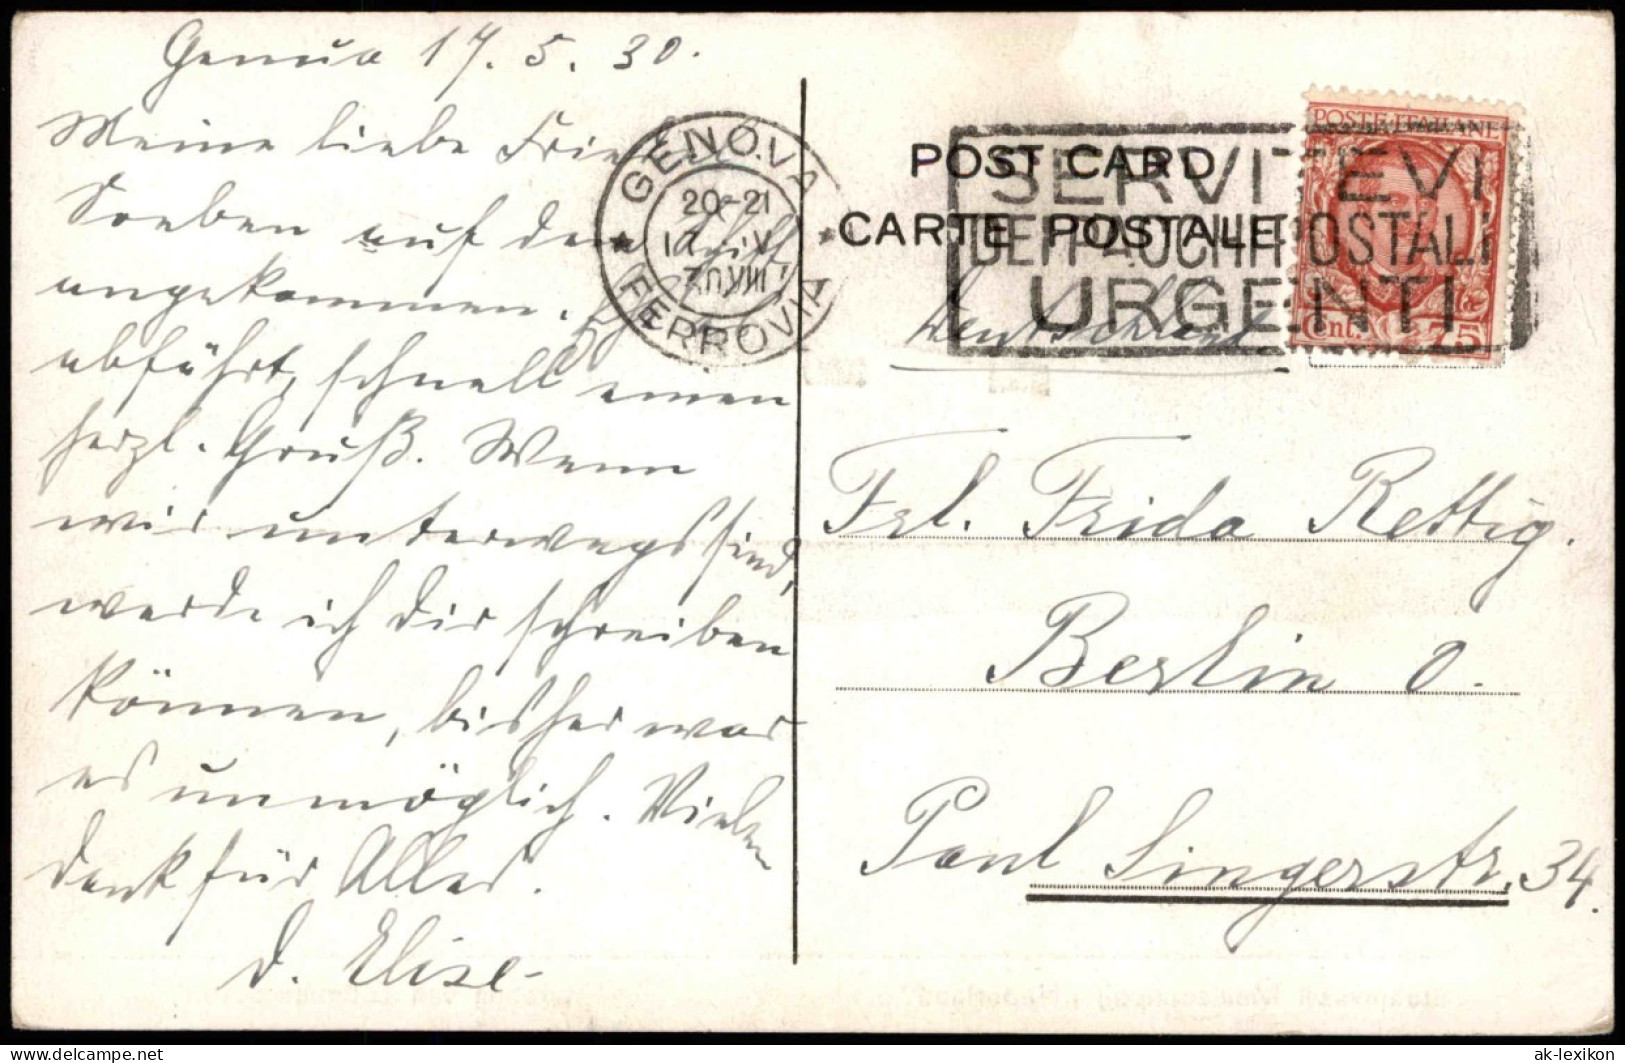 Genua 17. 5. 30.
Meine liebe Frieda
Soeben auf dem Schiff
angekommen.
abfährt, schnell einen
herzl. Gruß. Wenn
wir unterwegs sind,
werde ich dir schreiben
können, bisher war
es unmöglich. Vielen
Dank für Alles.
D. Elise
GENOVA
20-21
17 . V
30.VIII
FERROVIA
POST CARD
CARTE POSTALE
SERVITEVI
URGENTI
POSTE ITALIANE
Cent. 75
Deutschland
Frl. Frida Rettig.
Berlin O.
Paul Singerstr. 34.
delcampe.net
ak-lexikon